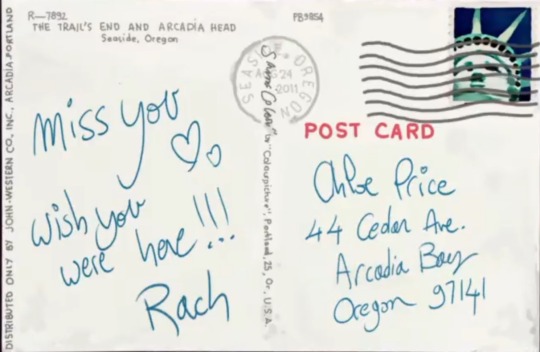 R—7892
THE TRAIL'S END AND ARCADIA HEAD
Seaside, Oregon
PB9854
DISTRIBUTED ONLY BY JOHN-WESTERN CO., INC., ARCADIA, PORTLAND
Miss you
wish you
were here!!!
Rach
SEASIDE. OREGON
AUG 24
2011
"Colourpicture", Portland, 25, Or., U.S.A
POST CARD
Chloe Price
44 Cedar Ave.
Arcadia Bay
Oregon 97141